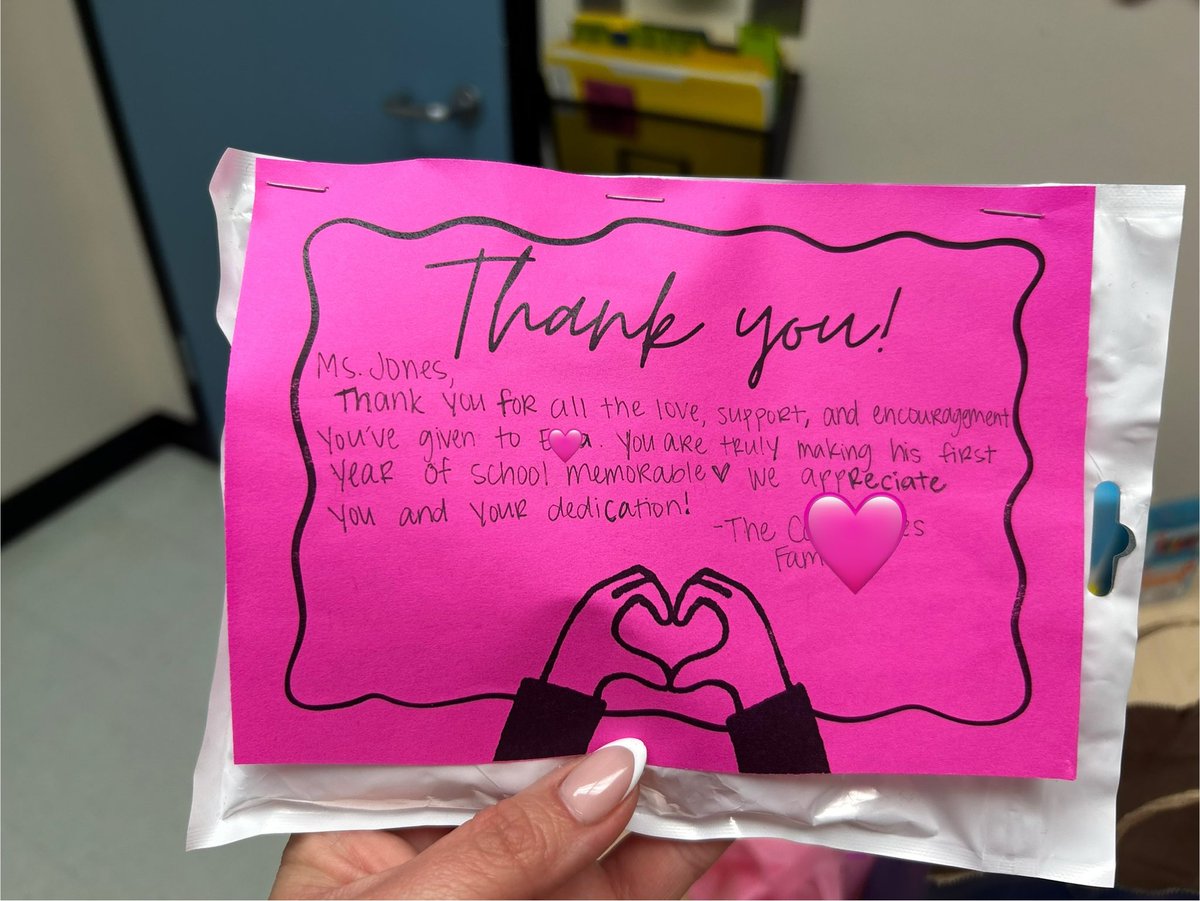 Thank you!
Ms. Jones,
Thank you for all the love, support, and encouragement
you've given to. You are truly making his first
year of school memorable♥ We appreciate
you and your dedication!
-The